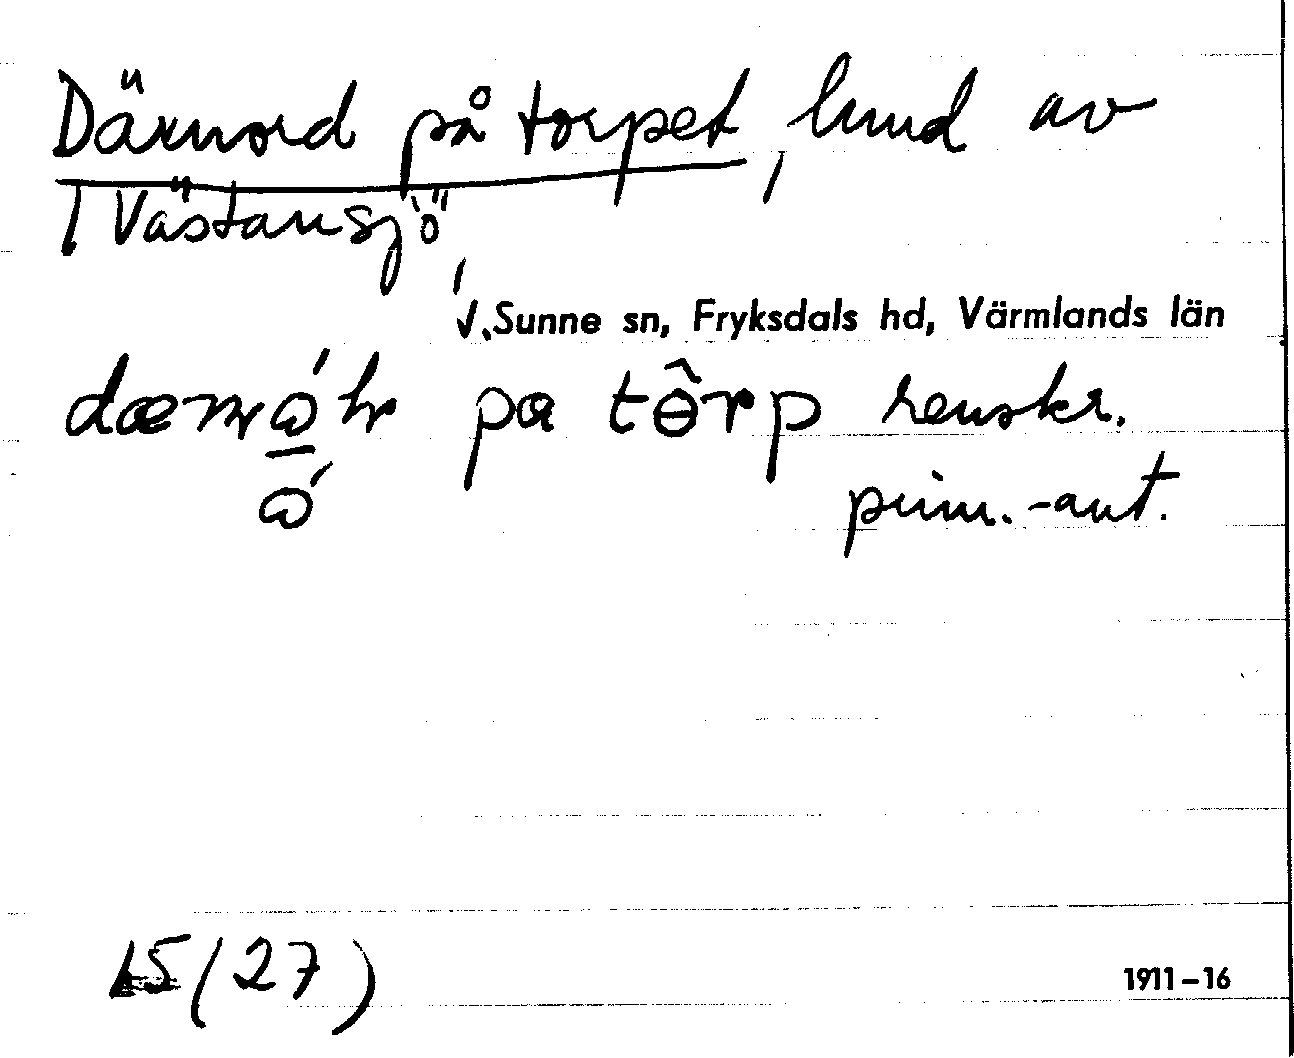 Därnord på torpet, hmd av
/ Västansjö
V. Sunne sn, Fryksdals hd, Värmlands län
pa tôrp renskr.
prim.-ant.
15 (27)
1911–16